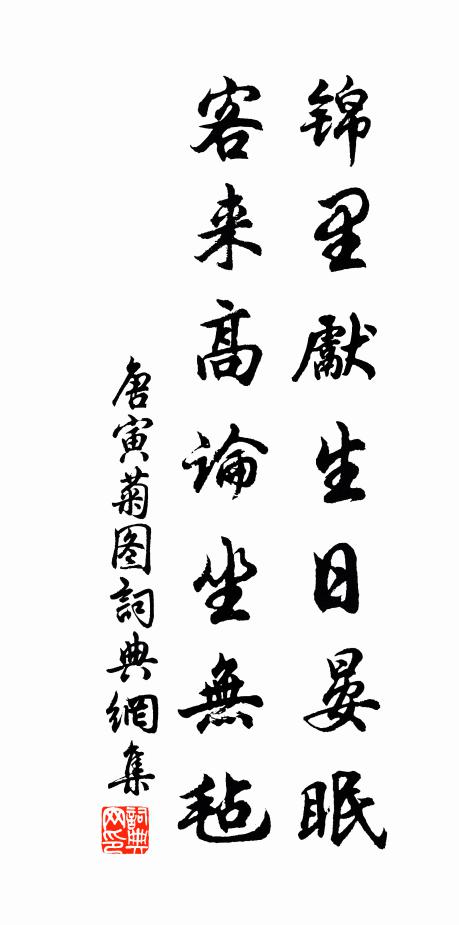 锦里獻生日晏眠
客来高論坐無毡
唐寅菊图詞典網集
詞典网印